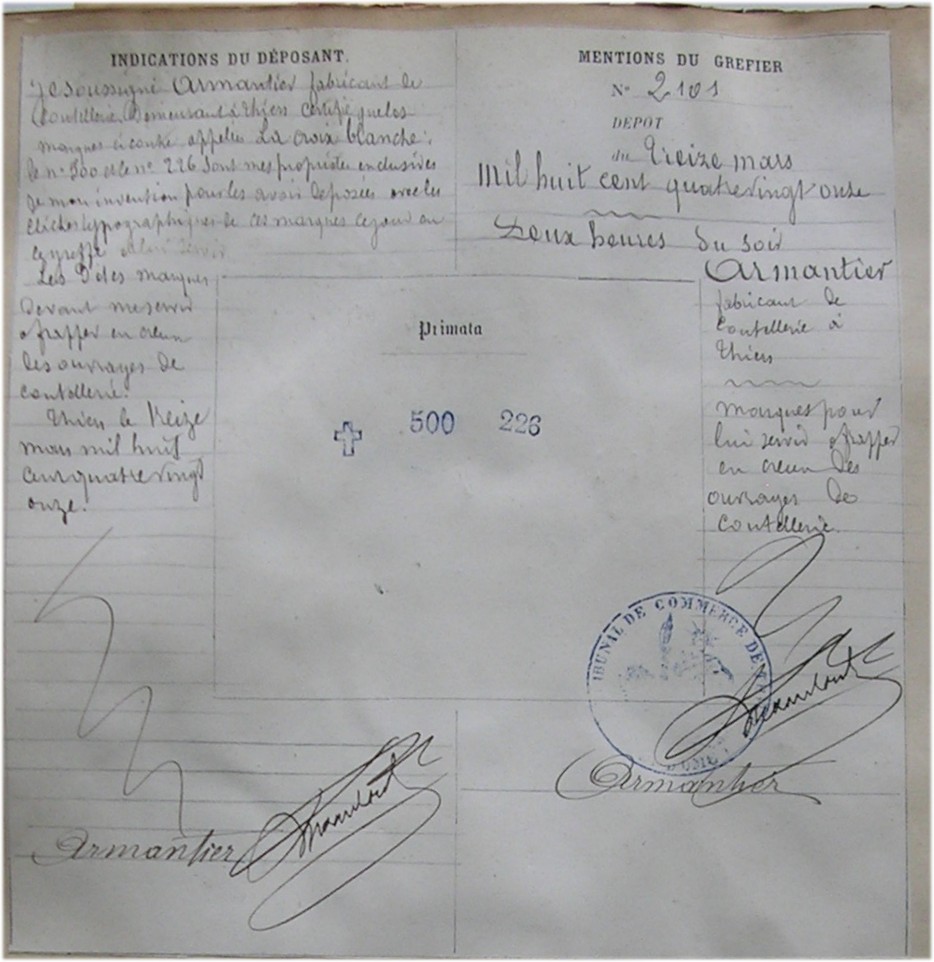 INDICATIONS DU DÉPOSANT.
Je soussigné Armantier fabricant de
Coutellerie Demeurant à Thiers certifie que les
marques ci contre appelées La croix blanche:
le n° 500 et le n° 226 sont mes propriétés exclusives
de mon invention pour les avoir déposées avec les
clichés typographiques de ces marques ce jour au
ce greffe
Les Dites marques
devant me servir
a frapper en creux
des ouvrages de
coutellerie.
Thiers le treize
mars mil huit
cent quatre vingt
onze.
Armantier
MENTIONS DU GREFIER
N° 2101
DÉPÔT
du Treize mars
Mil huit cent quatrevingt onze
Deux heures du soir
Armantier
fabricant de
Coutellerie à
Thiers
marques pour
lui servir a frapper
en creux des
ouvrages de
coutellerie.
Armantier
Primata
500 226
IBUNAL DE COMMERCE DE
DOME